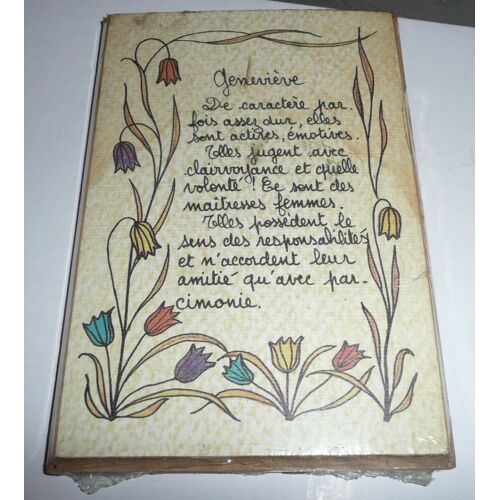 Geneviève
De caractère par-
fois assez dur, elles
sont actives, émotives.
Elles jugent avec
clairvoyance et quelle
volonté ! Ce sont des
maîtresses femmes.
Elles possèdent le
sens des responsabilités
et n'accordent leur
amitié qu'avec par-
cimonie.